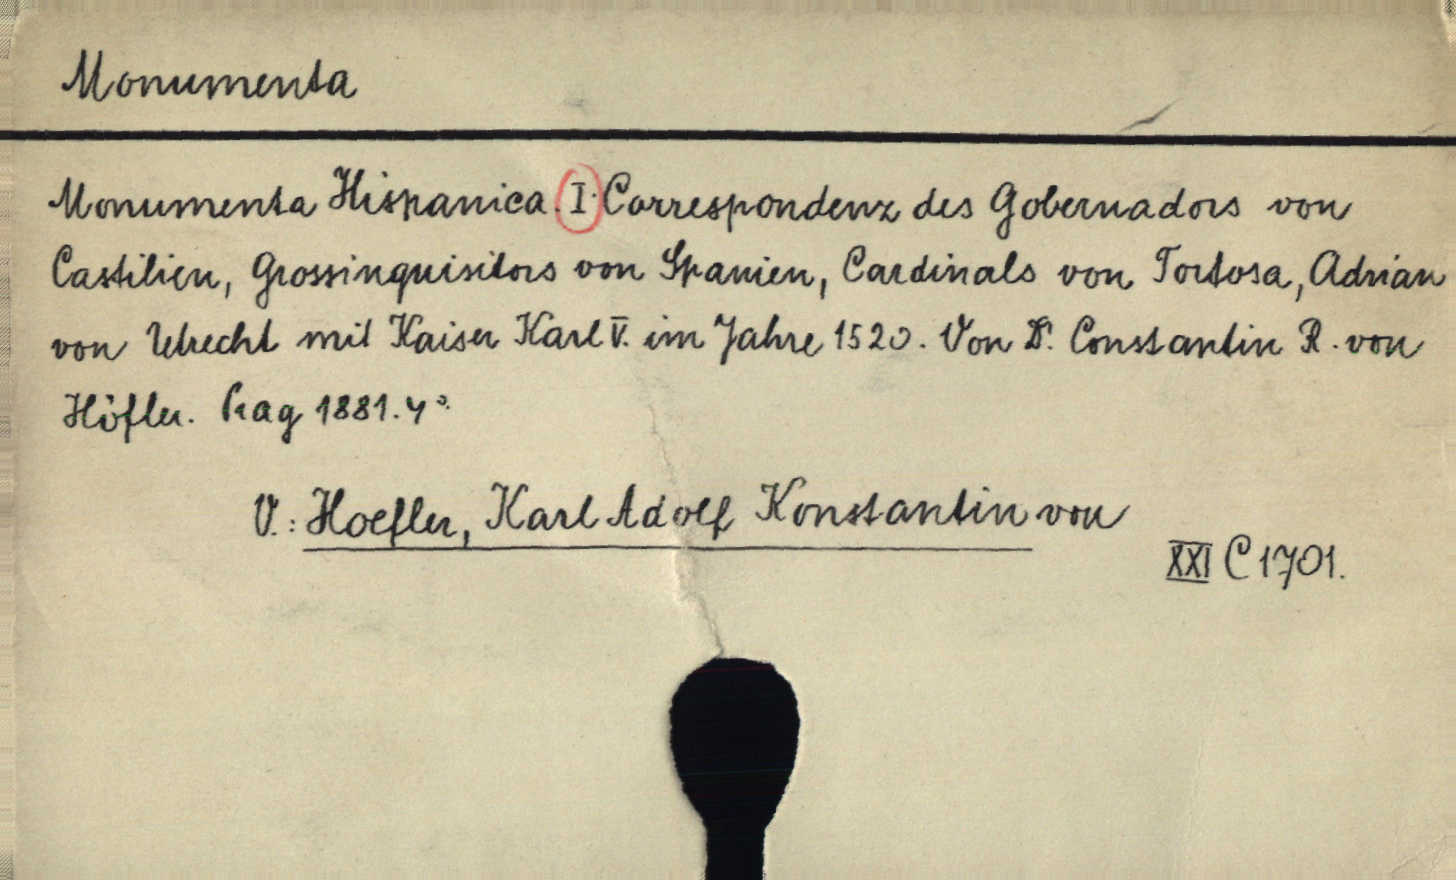 Monumenta
Monumenta Hispanica. I. Correspondenz des Gobernadors von
Castilien, Grossinquisitors von Spanien, Cardinals von Tortosa, Adrian
von Utrecht mit Kaiser Karl V. im Jahre 1520. Von Dr. Constantin R. von
Höfler. Prag 1881. 4°.
V.: Hoefler, Karl Adolf Konstantin von
XXI C 1701.